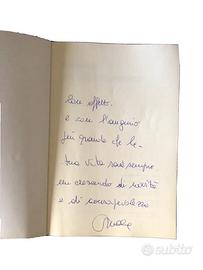 Con affetto.
e con l'augurio
più grande che la
tua vita sarà sempre
un crescendo di
e di consapevolezza
subito